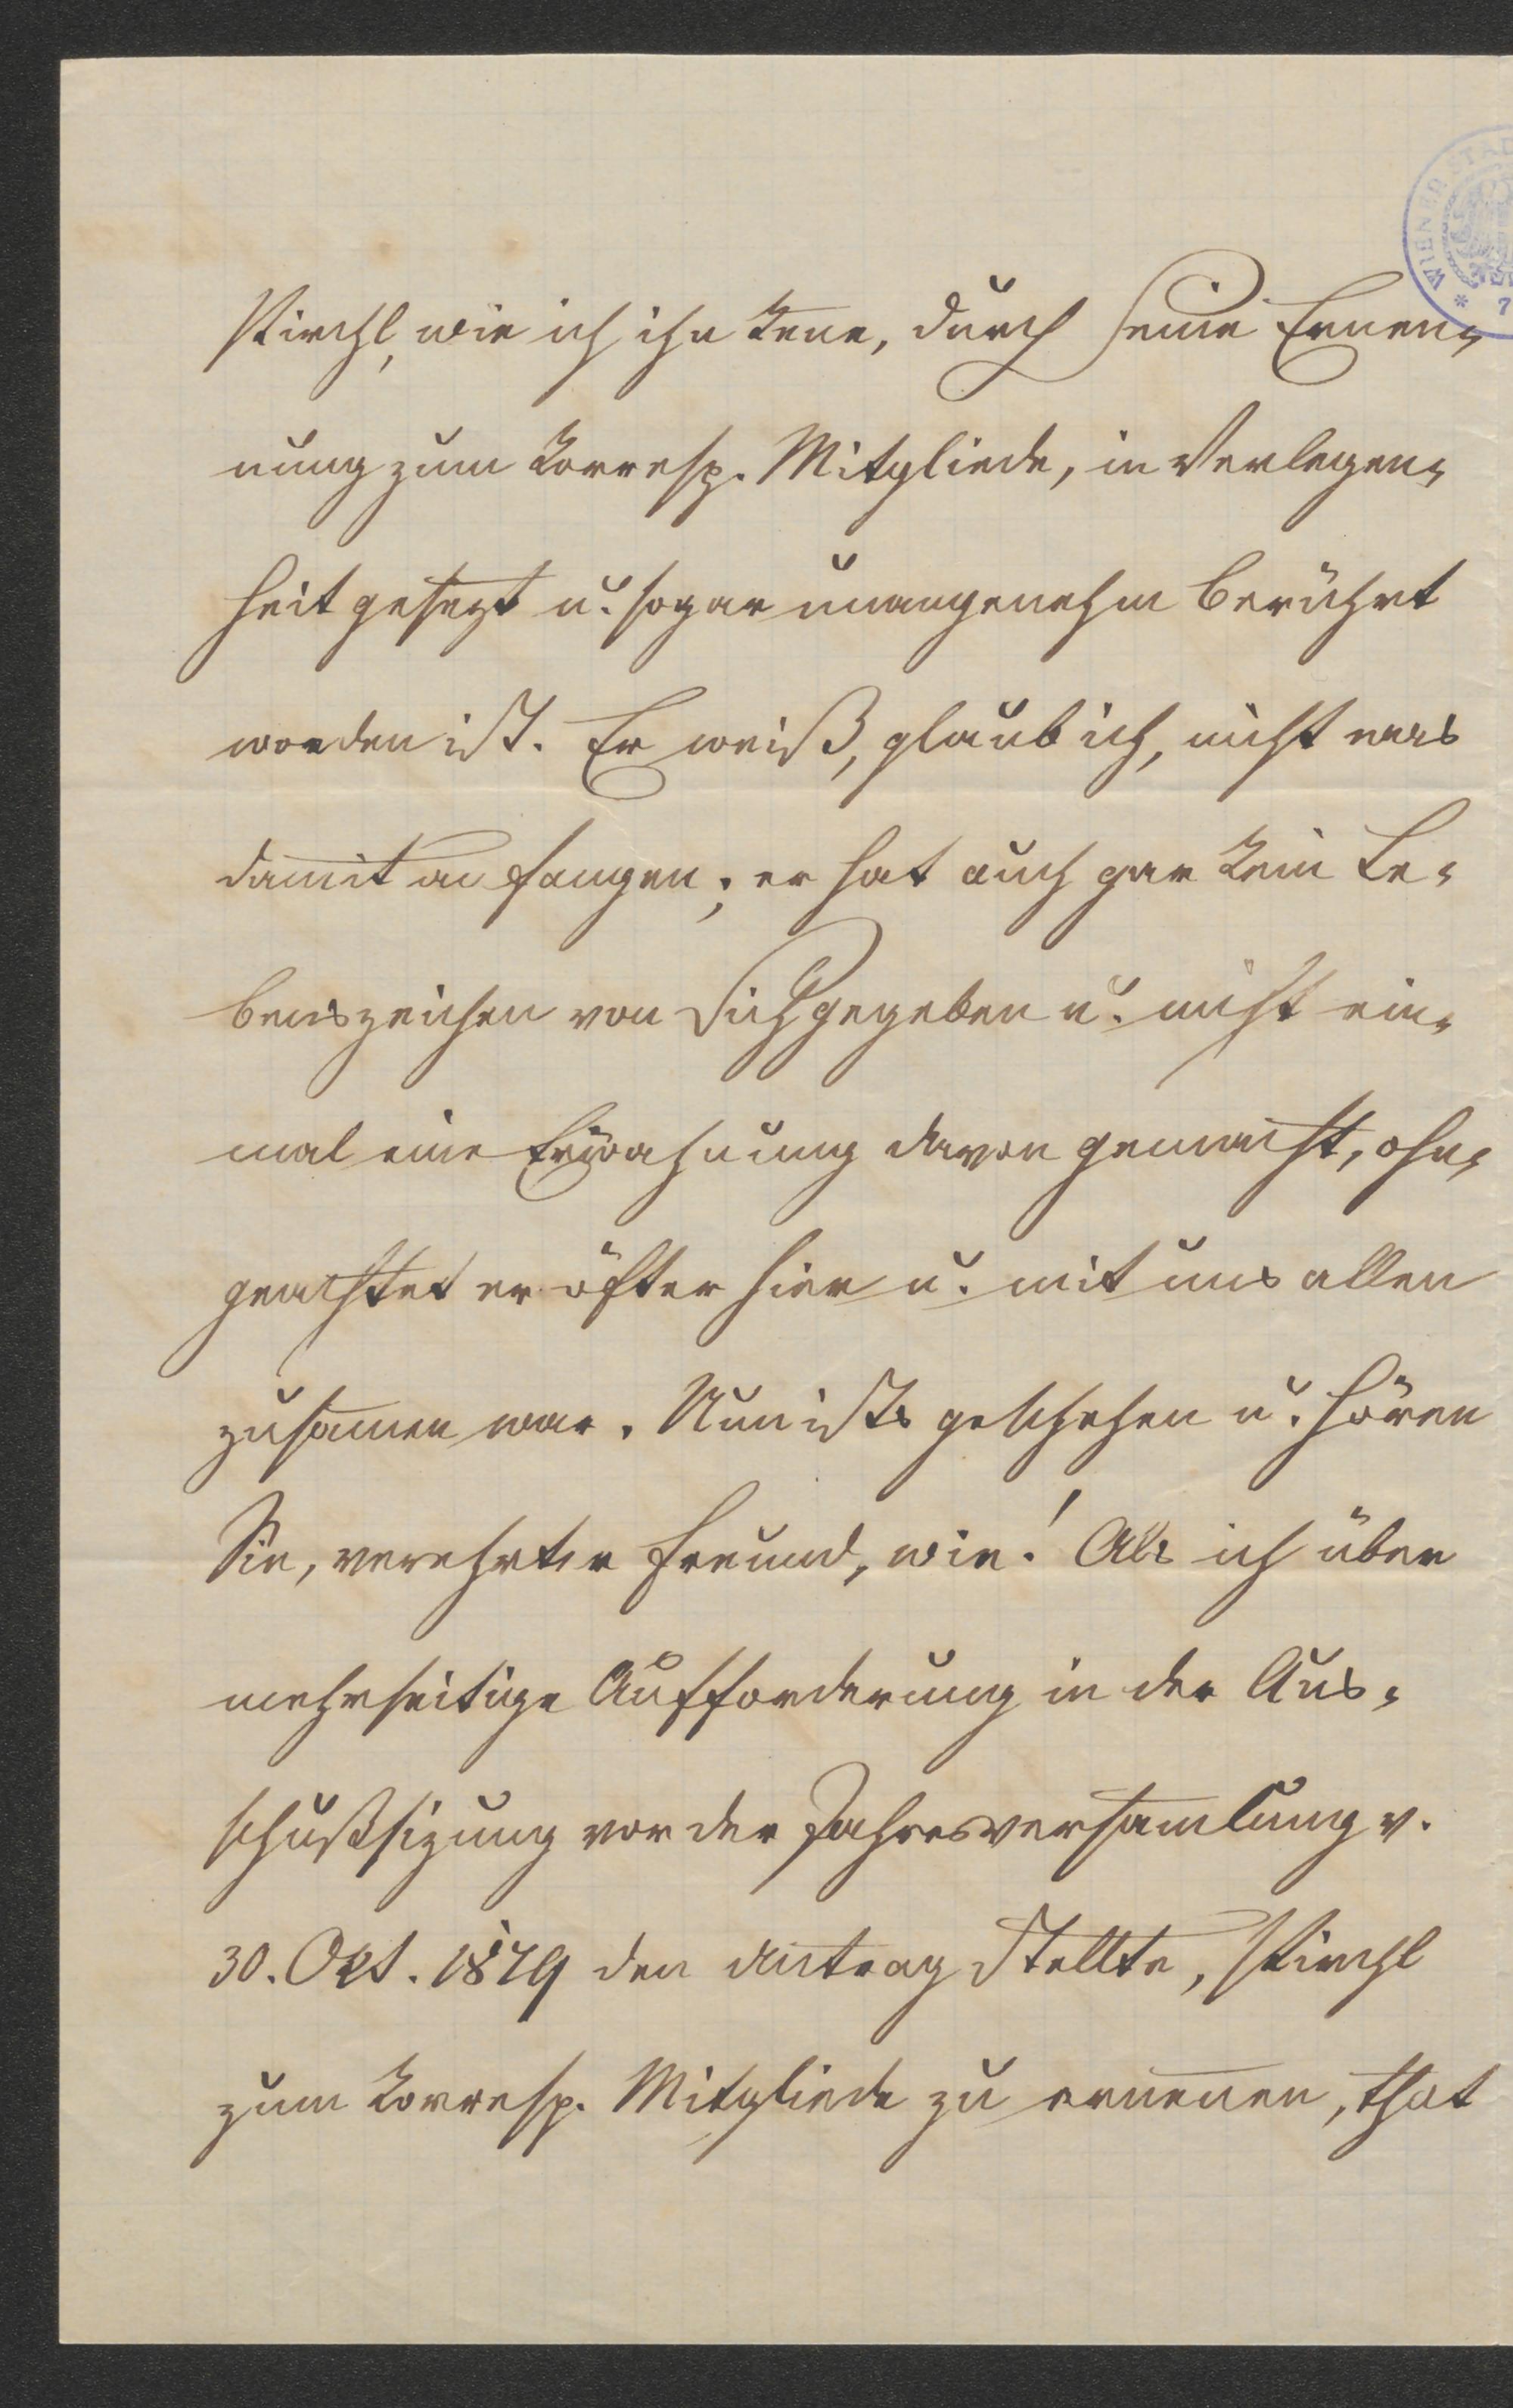 Pirchl, wie ich ihn kene, durch seine Ernen-
nung zum korresp. Mitgliede, in Verlegen-
heit gesezt u. sogar unangenehm berührt
worden ist. Er weiß, glaub ich, nicht was
damit anfangen; er hat auch gar kein Le-
benszeichen von sich gegeben u. nicht ein-
mal eine Erwähnung davon gemacht, ohn-
geachtet er öfter hier u. mit uns allen
zusamen war. Nun ists geschehen u. hören
Sie, verehrter Freund, wie! Als ich über
mehrseitige Aufforderung in der Aus-
schußsizung vor der Jahresversamlung v.
30. Okt. 1879 den Antrag stellte, Pirchl
zum korresp. Mitgliede zu ernenen, that
WIENER STAD
* 7